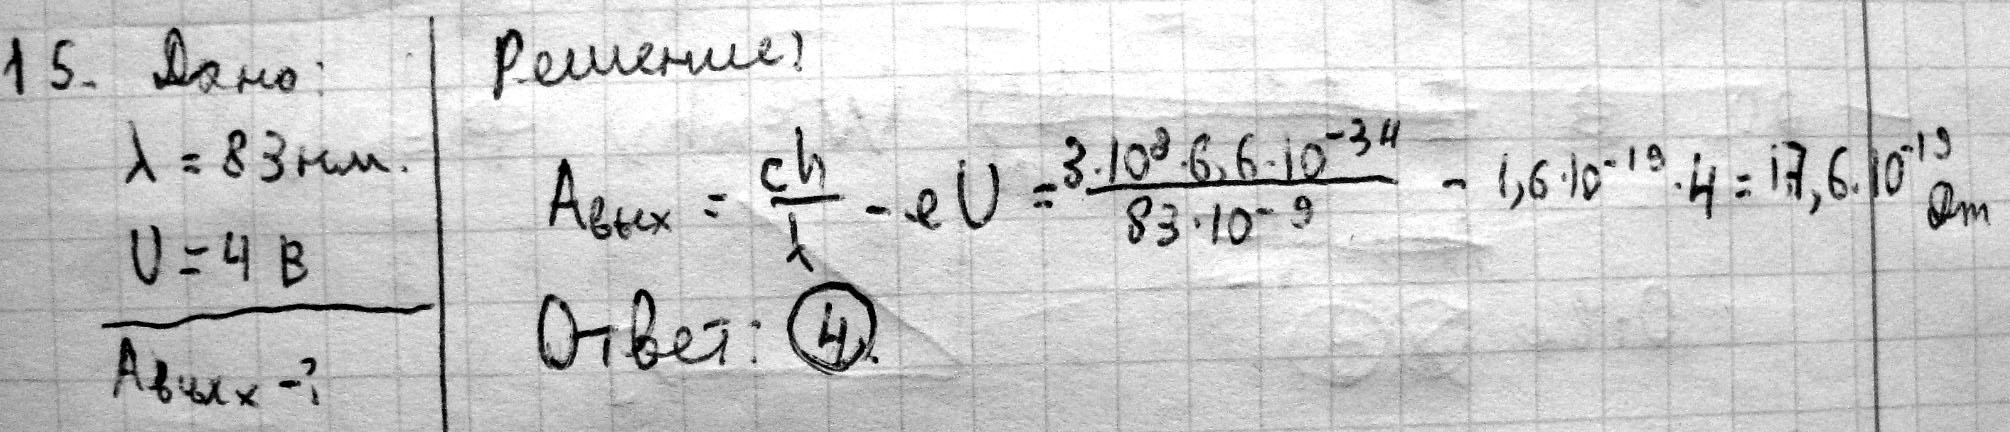 15. Дано:
λ = 83 нм.
U = 4 В
Aвых -?
Решение:
Aвых = ch/λ - eU = 3·10⁸·6,6·10⁻³⁴/83·10⁻⁹ - 1,6·10⁻¹⁹·4 = 17,6·10⁻¹⁹ Дж
Ответ: 4.